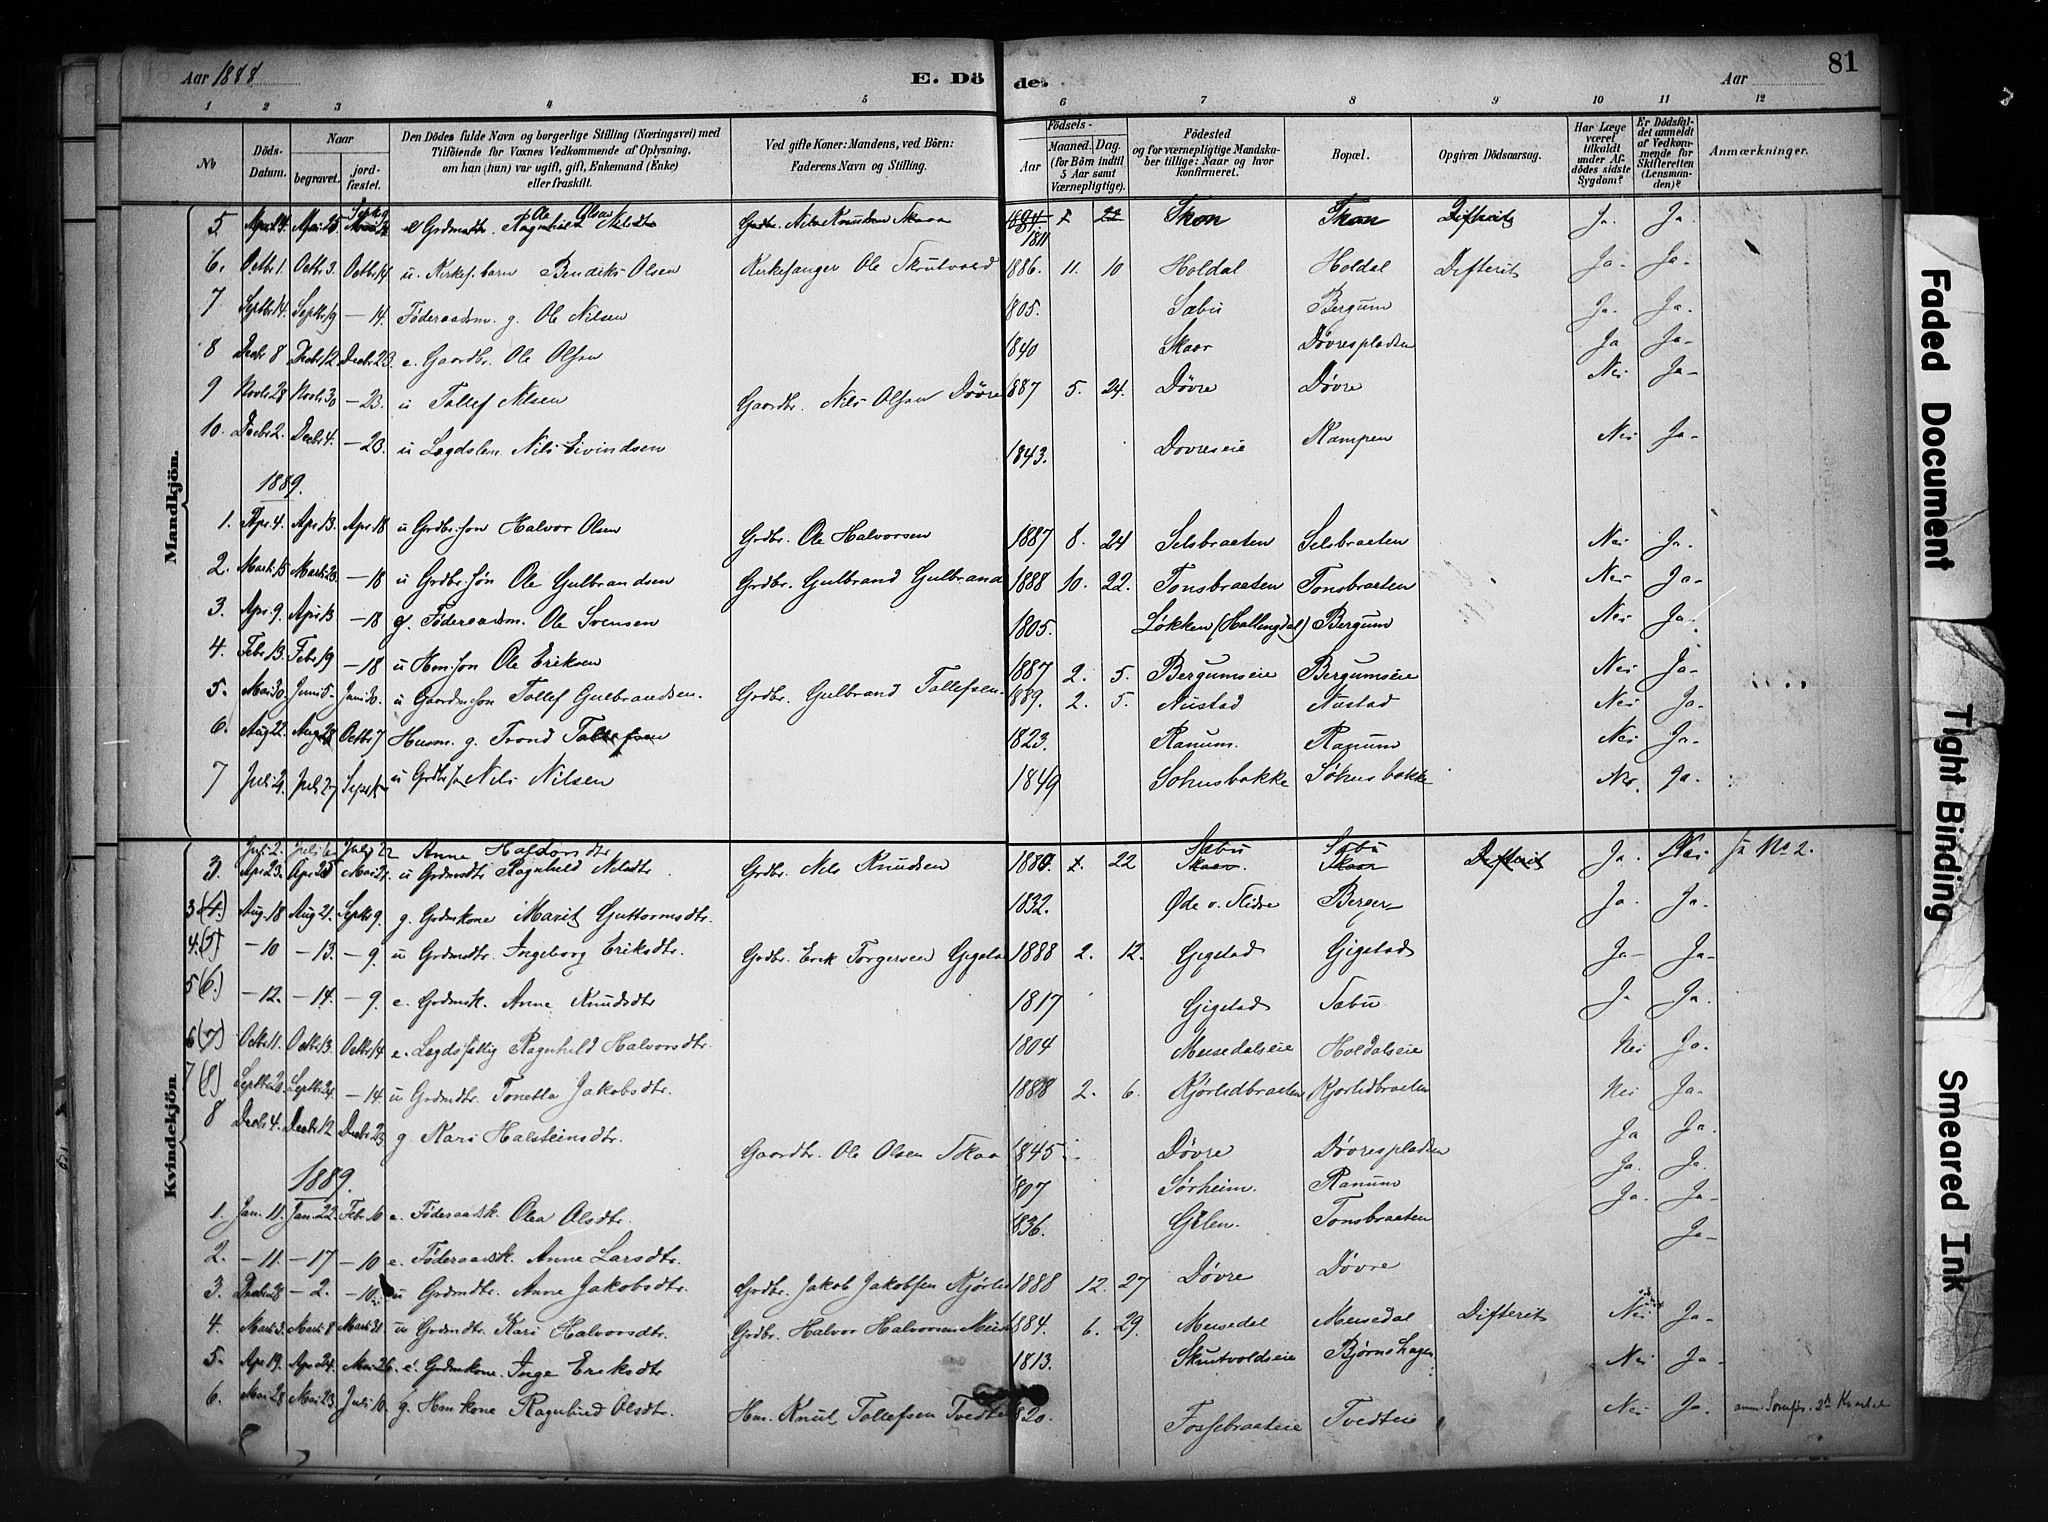 Aar 1888
E. Döde.
Aar
81
1 2 3 4 5 6 7 8 9 10 11 12
No
Döds-Datum.
Naar
begravet.
jord-fæstet.
Den Dödes fulde Navn og borgerlige Stilling (Næringsvei) med
Tilföiende for Voxnes Vedkommende af Oplysning,
om han (hun) var ugift, gift, Enkemand (Enke)
eller fraskilt.
Ved gifte Koner: Mandens, ved Börn:
Faderens Navn og Stilling.
Födsels-
Aar
Maaned. Dag.
(for Börn indtil 5 Aar samt Værnepligtige).
Födested
og for værnepligtige Mandskaber tillige: Naar og hvor konfirmeret.
Bopæl.
Opgiven Dödsaarsag.
Har Læge været tilkaldt under Afdödes sidste Sygdom?
Er Dödsfaldet anmeldt af Vedkommende for Skifteretten (Lensmanden)?
Anmærkninger.
Mandkjön.
5. April 24. Ole Olsen Grdbr. Nils Knudsen Skaa 1811 Difterit Ja. Ja.
6. Octbr 1. Octbr 3. Octbr 14 u. Kirkes. barn Bendik Olsen Kirkesanger Ole Skrutvold 1886. 11. 10 Holdal Holdal Difterit Ja- Ja-
7 Septbr 14. Septbr 19 — 14. Föderaadsm. g. Ole Nilsen 1805. Sæbu Bergum Ja. Ja.
8 Decbr 8 Decbr 12 Decbr 23. e. Gaardbr. Ole Olsen 1840 Skaar Døvrespladsen Ja Ja-
9 Novbr 28 Novbr 30 — 23. u Tollef Nilsen Gaardbr. Nils Olsen Døvre 1887 5. 24. Døvre Døvre Nei Ja-
10. Decbr 2. Decbr 4. — 23. u Lægdslem Nils Eivindsen 1843. Dovreseie Kampen Nei Ja-
1889.
1. Apr. 4. Apr 13. Apr 18 u Grdbr. søn Halvor Olsen Grdbr. Ole Halvorsen 1887 8. 24 Selsbraaten Selsbraaten Nei Ja-
2. Marts 15 Marts 23. — 18 u Grdbr. søn Ole Gulbrandsen Grdbr. Gulbrand Gulbrand 1888 10. 22. Tonsbraaten Tonsbraaten Nei Ja-
3. Apr. 9. April 13 — 18 g. Föderaadsm. Ole Svensen 1805. Løkken (Hallingdal) Bergum Nei Ja.
4. Febr 13. Febr 19 — 18 u Hm. søn Ole Eriksen 1887 2. 5. Bergumseie Bergumseie Nei Ja-
5. Mai 30. Juni 5. Juni 30. u Gaardm. søn Tollef Gulbrandsen. Grdbr. Gulbrand Tollefsen. 1889. 2. 5. Nustad Nustad Nei Ja-
6. Aug 22. Aug 28 Octbr 7 Husm. g. Trond Tollefsen 1823. Ranum. Ranum Nei Ja-
7 Juli 21. Juli 27 u Grdbr Nils Nilsen 1849 Søhusbakke Søhusbakke Nei. Ja.
Kvindekjön.
Juli 2. Juli 6 Juli 22 Anne Haldorsdtr Sæbu Sæbu
3. Apr 23. Apr 25 Mai 21. u Grdmdtr Ragnhild Nilsdtr. Grdbr. Nils Knudsen 22 Skaar Skaar Difterit Ja. Nei No 2.
3 (4.) Aug 18 Aug 21. Septbr 9. g. Grdmkone Marit Guttormsdtr. 1832. Øde v. Slidre Berger Ja. Ja.
4. (5) — 10 — 13. — 9. u Grdmdtr. Ingeborg Eriksdtr. Grdbr. Erik Torgersen Gigstad 1888 2. 12. Gigstad Gigstad Ja- Ja-
5 (6.) — 12. — 14. — 9. e. Grdmsk. Anne Knudsdtr 1817 Gigstad Sæbu Ja Ja.
6 (7) Octbr 11. Octbr 13. Octbr 14 e. Lægdsfattig Ragnhild Halvorsdtr. 1804 Meusedalseie Holdalseie Nei Ja.
7 (8) Septbr 20. Septbr 24. — 14 u Grdmdtr. Tonetta Jakobsdtr. 1888 2. 6. Kjørlidbraaten Kjorlidbraaten Nei Ja.
8 Decbr 4. Decbr 12 Decbr 23 g Kari Halsteinsdtr. Gaardbr. Ole Olsen Skaa 1845 Døvre Døvrespladsen Ja Ja.
1889.
1. Jan. 11. Jan 22. Febr 10 e. Föderaadsk. Olea Olsdtr. 1807 Sørheim. Ranum Ja. Ja.
2. — 11. — 17 — 10 e. Föderaadsk. Anne Larsdtr. 1836. Gilen. Tonsbraaten Ja. Ja-
3. Decbr 28 — 2. — 10 u Grdmdtr. Anne Jakobsdtr. Grdbr. Jakob Jakobsen Kjørlid 1888 12. 27 Døvre Døvre Ja-
4. Marts 3. Marts 8 Marts 31. u Grdmdtr. Kari Halvorsdtr. Grdbr. Halvor Halvorsen 1884. 6. 29. Meusedal Meusedal Difterit Nei Ja-
5. Apr. 19. Apr 24. Mai 26. e. Grdmkone. Inge Eriksdtr 1813. Skrutvoldseie Bjørnshagen Nei Ja-
6. Mai 28 Mai 23. Juli 10. g. Hmkone Ragnhild Olsdtr. Hm. Knut Tollefsen Tvedte 1820. Fossebraateie Tvedteie Nei Ja. 2det Kvartal
Faded Document
Tight Binding
Smeared Ink